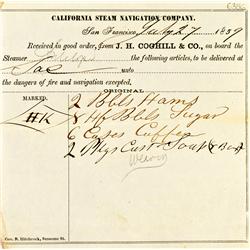 CALIFORNIA STEAM NAVIGATION COMPANY.
San Francisco, July 27 1859
Received in good order, from J. H. COGHILL & CO., on board the
Steamer the following articles, to be delivered at
Sac unto
the dangers of fire and navigation excepted.
ORIGINAL
MARKED.
HK
2 Bbls Hams
8 Hf Bbls Sugar
6 Cases Coffee
2 Pkgs Cast Soap &
Geo. B. Hitchcock, Sansome St.